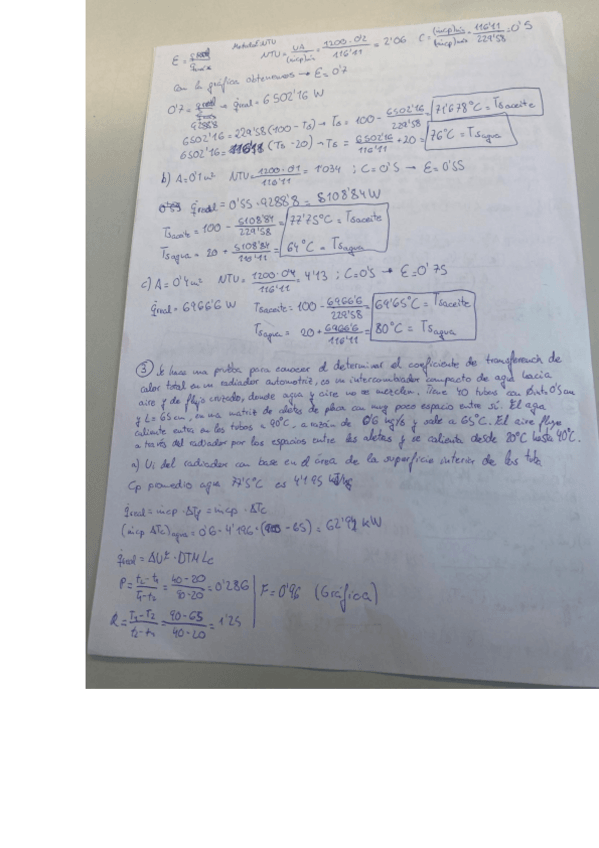 Método NTU
ε = q̇real / q̇máx   NTU = UA/(ṁcp)mín = 1200·0'2/116'11 = 2'06   C = (ṁcp)mín/(ṁcp)máx = 116'11/229'58 = 0'5
con la gráfica obtenemos → ε = 0'7
0'7 = q̇real/9288'8 → q̇real = 6502'16 W
6502'16 = 229'58 (100 - Ts) → Ts = 100 - 6502'16/229'58 = 71'678°C = Tsaceite
6502'16 = 116'11 (Ts - 20) → Ts = 6502'16/116'11 + 20 = 76°C = Tsagua
b) A = 0'1 m²   NTU = 1200·0'1/116'11 = 1'034 ; C = 0'5 → ε = 0'55
q̇real = 0'55 · 9288'8 = 5108'84 W
Tsaceite = 100 - 5108'84/229'58 = 77'75°C = Tsaceite
Tsagua = 20 + 5108'84/116'11 = 64°C = Tsagua
c) A = 0'4 m²   NTU = 1200·0'4/116'11 = 4'13 ; C = 0'5 → ε = 0'75
q̇real = 6966'6 W   Tsaceite = 100 - 6966'6/229'58 = 69'65°C = Tsaceite
Tsagua = 20 + 6966'6/116'11 = 80°C = Tsagua
③ Se hace una prueba para conocer el determinar el coeficiente de transferencia de
calor total en un radiador automotriz, es un intercambiador compacto de agua hacia
aire y de flujo cruzado, donde agua y aire no se mezclan. Tiene 40 tubos con 0'5 cm
y L = 65 cm, en una matriz de aletas de placa con muy poco espacio entre sí. El agua
caliente entra en los tubos a 90°C, a razón de 0'6 kg/s y sale a 65°C. El aire fluye
a través del radiador por los espacios entre las aletas y se calienta desde 20°C hasta 40°C.
a) Ui del radiador con base en el área de la superficie interior de los tubos
Cp promedio agua 77'5°C es 4'195
q̇real = ṁcp · ΔTf = ṁcp · ΔTc
(ṁcp ΔTc)agua = 0'6 · 4'196 · (90 - 65) = 62'94 kW
q̇real = AUF · DTMLc
P = t2 - t1/T1 - t1 = 40 - 20/90 - 20 = 0'286
F = 0'96 (Gráfica)
R = T1 - T2/t2 - t1 = 90 - 65/40 - 20 = 1'25